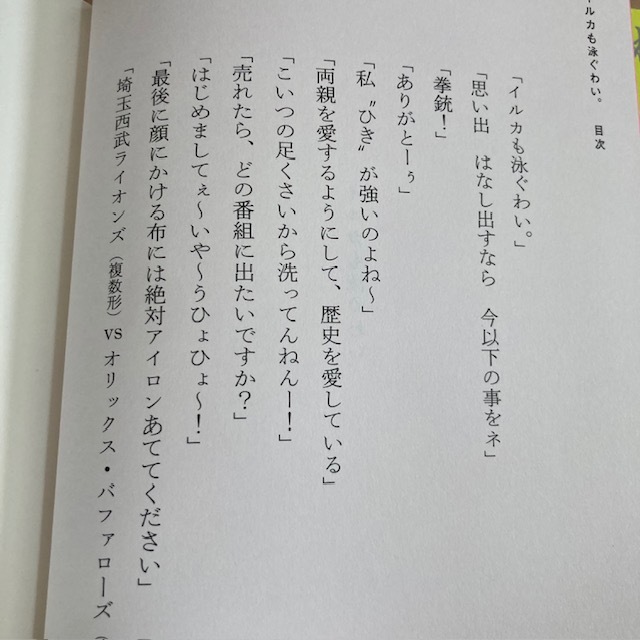 イルカも泳ぐわい。 目次
「イルカも泳ぐわい。」
「思い出 はなし出すなら 今以下の事をネ」
「拳銃！」
「ありがとーぅ」
「私〝ひき〟が強いのよね〜」
「両親を愛するようにして、歴史を愛している」
「こいつの足くさいから洗ってんねんー！」
「売れたら、どの番組に出たいですか？」
「はじめましてぇ〜いや〜うひょひょ〜！」
「最後に顔にかける布には絶対アイロンあててください」
「埼玉西武ライオンズ（複数形）vsオリックス・バファローズ（